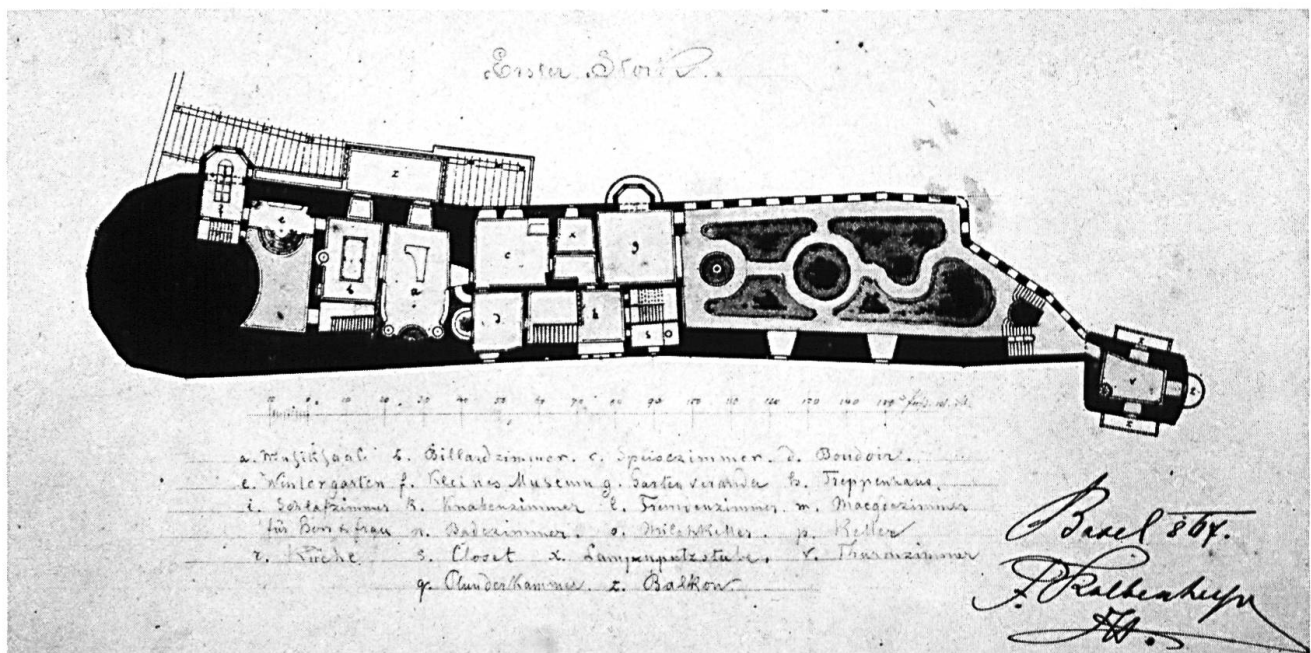 Erster Stock.
a. Musiksaal b. Billardzimmer. c. Speisezimmer. d. Boudoir.
e. Wintergarten f. Kleines Museum g. Gartenveranda h. Treppenhaus.
i. Schlafzimmer k. Knabenzimmer l. Fremdenzimmer m. Maegdezimmer
für Herr & frau n. Badezimmer. o. Milchkeller. p. Keller
r. Küche s. Closet x. Lampenputzstube. v. Thurmzimmer
q. Plunderkammer. z. Balkon
Basel